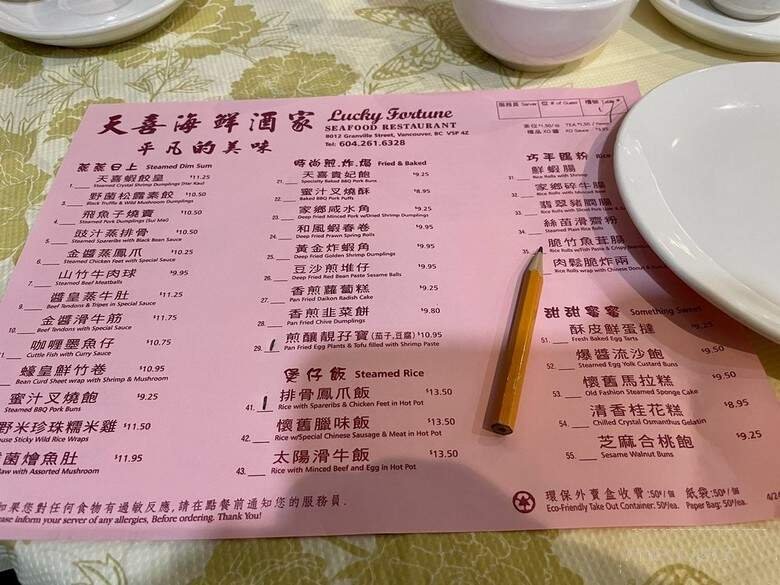 天喜海鮮酒家
Lucky Fortune
SEAFOOD RESTAURANT
8012 Granville Street, Vancouver, BC V5P 4Z
Tel: 604.261.6328
平凡的美味
服務員 Server
位 # of Guest
檯號 Table #
茶位
TEA
XO Sauce
蒸蒸日上 Steamed Dim Sum
天喜蝦餃皇 $11.25
Steamed Crystal Shrimp Dumplings (Har Kau)
3. 野菌松露素餃 $10.50
Black Truffle & Wild Mushroom Dumplings
4. 飛魚子燒賣 $10.50
Steamed Pork Dumplings (Sui Mai)
5. 豉汁蒸排骨 $10.50
Steamed Spareribs with Black Bean Sauce
6. 金醬蒸鳳爪 $10.25
Steamed Chicken Feet with Special Sauce
7. 山竹牛肉球 $9.95
Steamed Beef Meatballs
9. 醬皇蒸牛肚 $11.25
Beef Tendons & Tripes in Special Sauce
10. 金醬滑牛筋 $11.75
Beef Tendons with Special Sauce
咖喱墨魚仔 $10.75
Cuttle Fish with Curry Sauce
蠔皇鮮竹卷 $10.95
Bean Curd Sheet wrap with Shrimp & Mushroom
蜜汁叉燒飽 $9.25
Steamed BBQ Pork Buns
野米珍珠糯米雞 $11.50
House Sticky Wild Rice Wraps
菌燴魚肚 $11.95
Maw with Assorted Mushroom
時尚煎.炸.焗 Fried & Baked
21. 天喜貴妃飽 $9.25
Specialty Baked BBQ Pork Buns
22. 蜜汁叉燒酥 $8.95
Baked BBQ Pork Puffs
23. 家鄉咸水角 $9.25
Deep Fried Minced Pork w/Dried Shrimp Dumplings
24. 和風蝦春卷 $9.95
Deep Fried Prawn Spring Rolls
25. 黃金炸蝦角 $9.95
Deep Fried Golden Shrimp Dumplings
26. 豆沙煎堆仔 $9.95
Deep Fried Red Bean Paste Sesame Balls
27. 香煎蘿蔔糕 $9.25
Pan Fried Daikon Radish Cake
28. 香煎韭菜餅 $9.80
Pan Fried Chive Dumplings
29. 煎釀靚孖寶(茄子,豆腐) $10.95
Pan Fried Egg Plants & Tofu filled with Shrimp Paste
煲仔飯 Steamed Rice
41. 排骨鳳爪飯 $13.50
Rice with Spareribs & Chicken Feet in Hot Pot
42. 懷舊臘味飯 $13.50
Rice w/Special Chinese Sausage & Meat in Hot Pot
43. 太陽滑牛飯 $13.50
Rice with Minced Beef and Egg in Hot Pot
鮮蝦腸
Rice Rolls with Shrimp
32. 家鄉碎牛腸
33. 翡翠豬膶腸
34. 絲苗滑齋粉
Steamed Plain Rice Rolls
35. 脆竹魚茸腸
肉鬆脆炸兩
Rice Rolls wrap with Chinese Donut
甜甜蜜蜜 Something Sweet
51. 酥皮鮮蛋撻
Fresh Baked Egg Tarts
52. 爆醬流沙飽 $9.50
Steamed Egg Yolk Custard Buns
53. 懷舊馬拉糕 $9.50
Old Fashion Steamed Sponge Cake
54. 清香桂花糕 $8.95
Chilled Crystal Osmanthus Gelatin
55. 芝麻合桃飽 $9.25
Sesame Walnut Buns
如果您對任何食物有過敏反應,請在點餐前通知您的服務員.
Please inform your server of any allergies, Before ordering. Thank You!
環保外賣盒收費:50¢/個 紙袋:50¢/個
Eco-Friendly Take Out Container: 50¢/ea. Paper Bag: 50¢/ea.